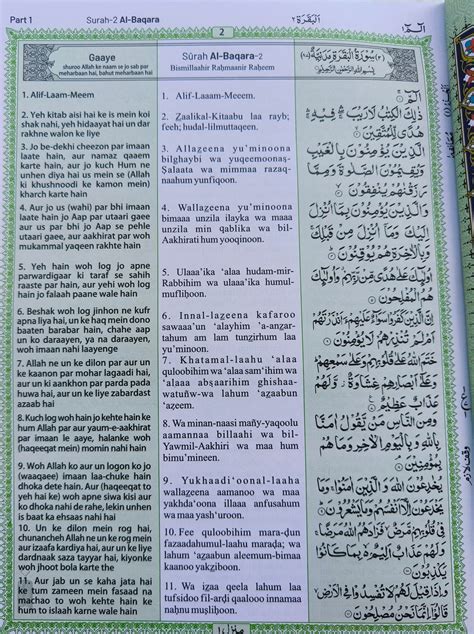 Part 1
Surah-2 Al-Baqara
اَلْبَقَرَة ٢
الٓمٓ ١
2
Gaaye
shuroo Allah ke naam se jo sab par
meharbaan hai, bahut meharbaan hai
1. Alif-Laam-Meem
2. Yeh kitab aisi hai ke is mein koi
shak nahi, yeh hidaayat hai un dar
rakhne walon ke liye
3. Jo be-dekhi cheezon par imaan
laate hain, aur namaz qaaem
karte hain, aur jo kuch Hum ne
unhen diya hai us me se (Allah
ki khushnoodi ke kamon mein)
kharch karte hain
4. Aur jo us (wahi) par bhi imaan
laate hain jo Aap par utaari gaee
aur us par bhi jo Aap se pehle
utaari gaee, aur aakhirat par woh
mukammal yaqeen rakhte hain
5. Yeh hain woh log jo apne
parwardigaar ki taraf se sahih
raaste par hain, aur yehi woh log
hain jo falaah paane wale hain
6. Beshak woh log jinhon ne kufr
apna liya hai, un ke haq mein dono
baaten barabar hain, chahe aap
un ko daraayen, ya na daraayen,
woh imaan nahi laayenge
7. Allah ne un ke dilon par aur un
ke kaanon par mohar lagaadi hai,
aur un ki aankhon par parda pada
huwa hai, aur un ke liye zabardast
azaab hai
8. Kuch log woh hain jo kehte hain ke
hum Allah par aur yaum-e-aakhirat
par imaan le aaye, halanke woh
(haqeeqat mein) momin nahi hain
9. Woh Allah ko aur un logon ko jo
(waaqaee) imaan laa-chuke hain
dhoka dete hain. Aur (haqeeqat to
yeh hai ke) woh apne siwa kisi aur
ko dhoka nahi de rahe, lekin unhen
is baat ka ehsaas nahi hai
10. Un ke dilon mein rog hai,
chunancheh Allah ne un ke rog mein
aur izaafa kardiya hai, aur un ke liye
dardnaak saza tayyar hai, kiyonke
woh jhoot bola karte the
11. Aur jab un se kaha jata hai
ke tum zameen mein fasaad na
machao to woh kehte hain ke
hum to islaah karne wale hain
Sūrah Al-Baqara-2
Bismillaahir Raḥmaanir Raḥeem
1. Alif-Laaam-Meeem.
2. Zaalikal-Kitaabu laa rayb;
feeh; hudal-lilmuttaqeen.
3. Allazeena yu'minoona
bilghaybi wa yuqeemoonaṣ-
Ṣalaata wa mimmaa razaq-
naahum yunfiqoon.
4. Wallazeena yu'minoona
bimaaa unzila ilayka wa maaa
unzila min qablika wa bil-
Aakhirati hum yooqinoon.
5. Ulaaa'ika 'alaa hudam-mir-
Rabbihim wa ulaaa'ika humul-
mufliḥoon.
6. Innal-lazeena kafaroo
sawaaa'un 'alayhim 'a-anzar-
tahum am lam tunzirhum laa
yu'minoon.
7. Khatamal-laahu 'alaa
quloobihim wa 'alaa sam'ihim wa
'alaaa abṣaarihim ghishaa-
watuñw-wa lahum 'azaabun
'azeem.
8. Wa minan-naasi mañy-yaqoolu
aamannaa billaahi wa bil-
Yawmil-Aakhiri wa maa hum
bimu'mineen.
9. Yukhaadi'oonal-laaha
wallazeena aamanoo wa maa
yakhda'oona illaaa anfusahum
wa maa yash'uroon.
10. Fee quloobihim mara-ḍun
fazaadahumul-laahu maraḍa; wa
lahum 'azaabun aleemum-bimaa
kaanoo yakziboon.
11. Wa izaa qeela lahum laa
tufsidoo fil-arḍi qaalooo innamaa
naḥnu muṣliḥoon.
(٢) سُوْرَةُ الْبَقَرَةِ مَدَنِيَّةٌ (٨٧)
بِسْمِ اللّٰهِ الرَّحْمٰنِ الرَّحِيْمِ
الٓمّٓ ۝١
ذٰلِكَ الْكِتٰبُ لَا رَيْبَ ۛ فِيْهِ ۛ
هُدًى لِّلْمُتَّقِيْنَ ۝٢
الَّذِيْنَ يُؤْمِنُوْنَ بِالْغَيْبِ
وَيُقِيْمُوْنَ الصَّلٰوةَ وَمِمَّا
رَزَقْنٰهُمْ يُنْفِقُوْنَ ۝٣
وَالَّذِيْنَ يُؤْمِنُوْنَ بِمَآ اُنْزِلَ
اِلَيْكَ وَمَآ اُنْزِلَ مِنْ قَبْلِكَ ۚ
وَبِالْاٰخِرَةِ هُمْ يُوْقِنُوْنَ ۝٤
اُولٰٓئِكَ عَلٰى هُدًى مِّنْ رَّبِّهِمْ ۗ وَاُولٰٓئِكَ
هُمُ الْمُفْلِحُوْنَ ۝٥
اِنَّ الَّذِيْنَ كَفَرُوْا سَوَآءٌ عَلَيْهِمْ ءَاَنْذَرْتَهُمْ
اَمْ لَمْ تُنْذِرْهُمْ لَا يُؤْمِنُوْنَ ۝٦
خَتَمَ اللّٰهُ عَلٰى قُلُوْبِهِمْ وَعَلٰى سَمْعِهِمْ ۗ
وَعَلٰٓى اَبْصَارِهِمْ غِشَاوَةٌ ۖ وَّلَهُمْ
عَذَابٌ عَظِيْمٌ ۝٧
وَمِنَ النَّاسِ مَنْ يَّقُوْلُ اٰمَنَّا
بِاللّٰهِ وَبِالْيَوْمِ الْاٰخِرِ وَمَا هُمْ
بِمُؤْمِنِيْنَ ۝٨
يُخٰدِعُوْنَ اللّٰهَ وَالَّذِيْنَ اٰمَنُوْا ۚ وَمَا
يَخْدَعُوْنَ اِلَّآ اَنْفُسَهُمْ وَمَا يَشْعُرُوْنَ ۝٩
فِيْ قُلُوْبِهِمْ مَّرَضٌ ۙ فَزَادَهُمُ اللّٰهُ مَرَضًا ۚ
وَلَهُمْ عَذَابٌ اَلِيْمٌ ۢ بِمَا كَانُوْا
يَكْذِبُوْنَ ۝١٠
وَاِذَا قِيْلَ لَهُمْ لَا تُفْسِدُوْا فِى الْاَرْضِ ۙ
قَالُوْٓا اِنَّمَا نَحْنُ مُصْلِحُوْنَ ۝١١
وقف لازم
منزل ١